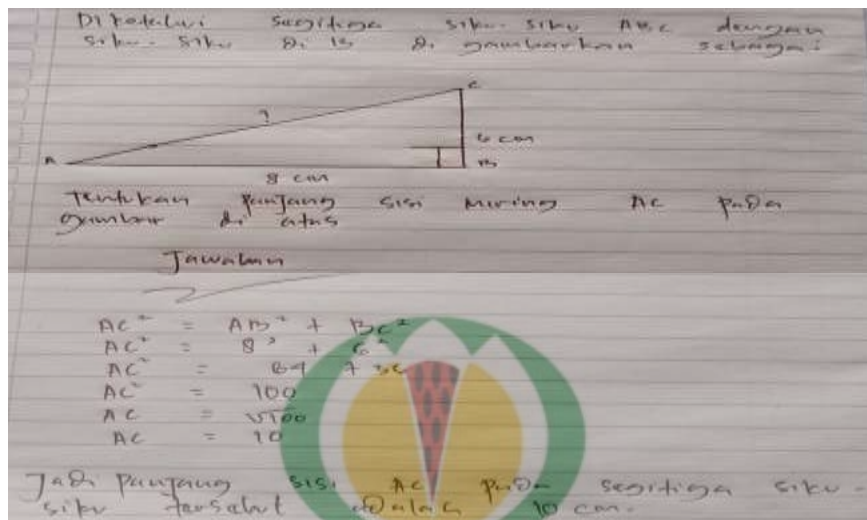 Diketahui segitiga siku-siku ABC dengan
siku-siku di B di gambarkan sebagai
C
?
6 cm
A
B
8 cm
Tentukan panjang sisi miring AC pada
gambar di atas
Jawaban
AC² = AB² + BC²
AC² = 8² + 6²
AC² = 64 + 36
AC² = 100
AC = √100
AC = 10
Jadi panjang sisi AC pada segitiga siku-
siku tersebut adalah 10 cm.